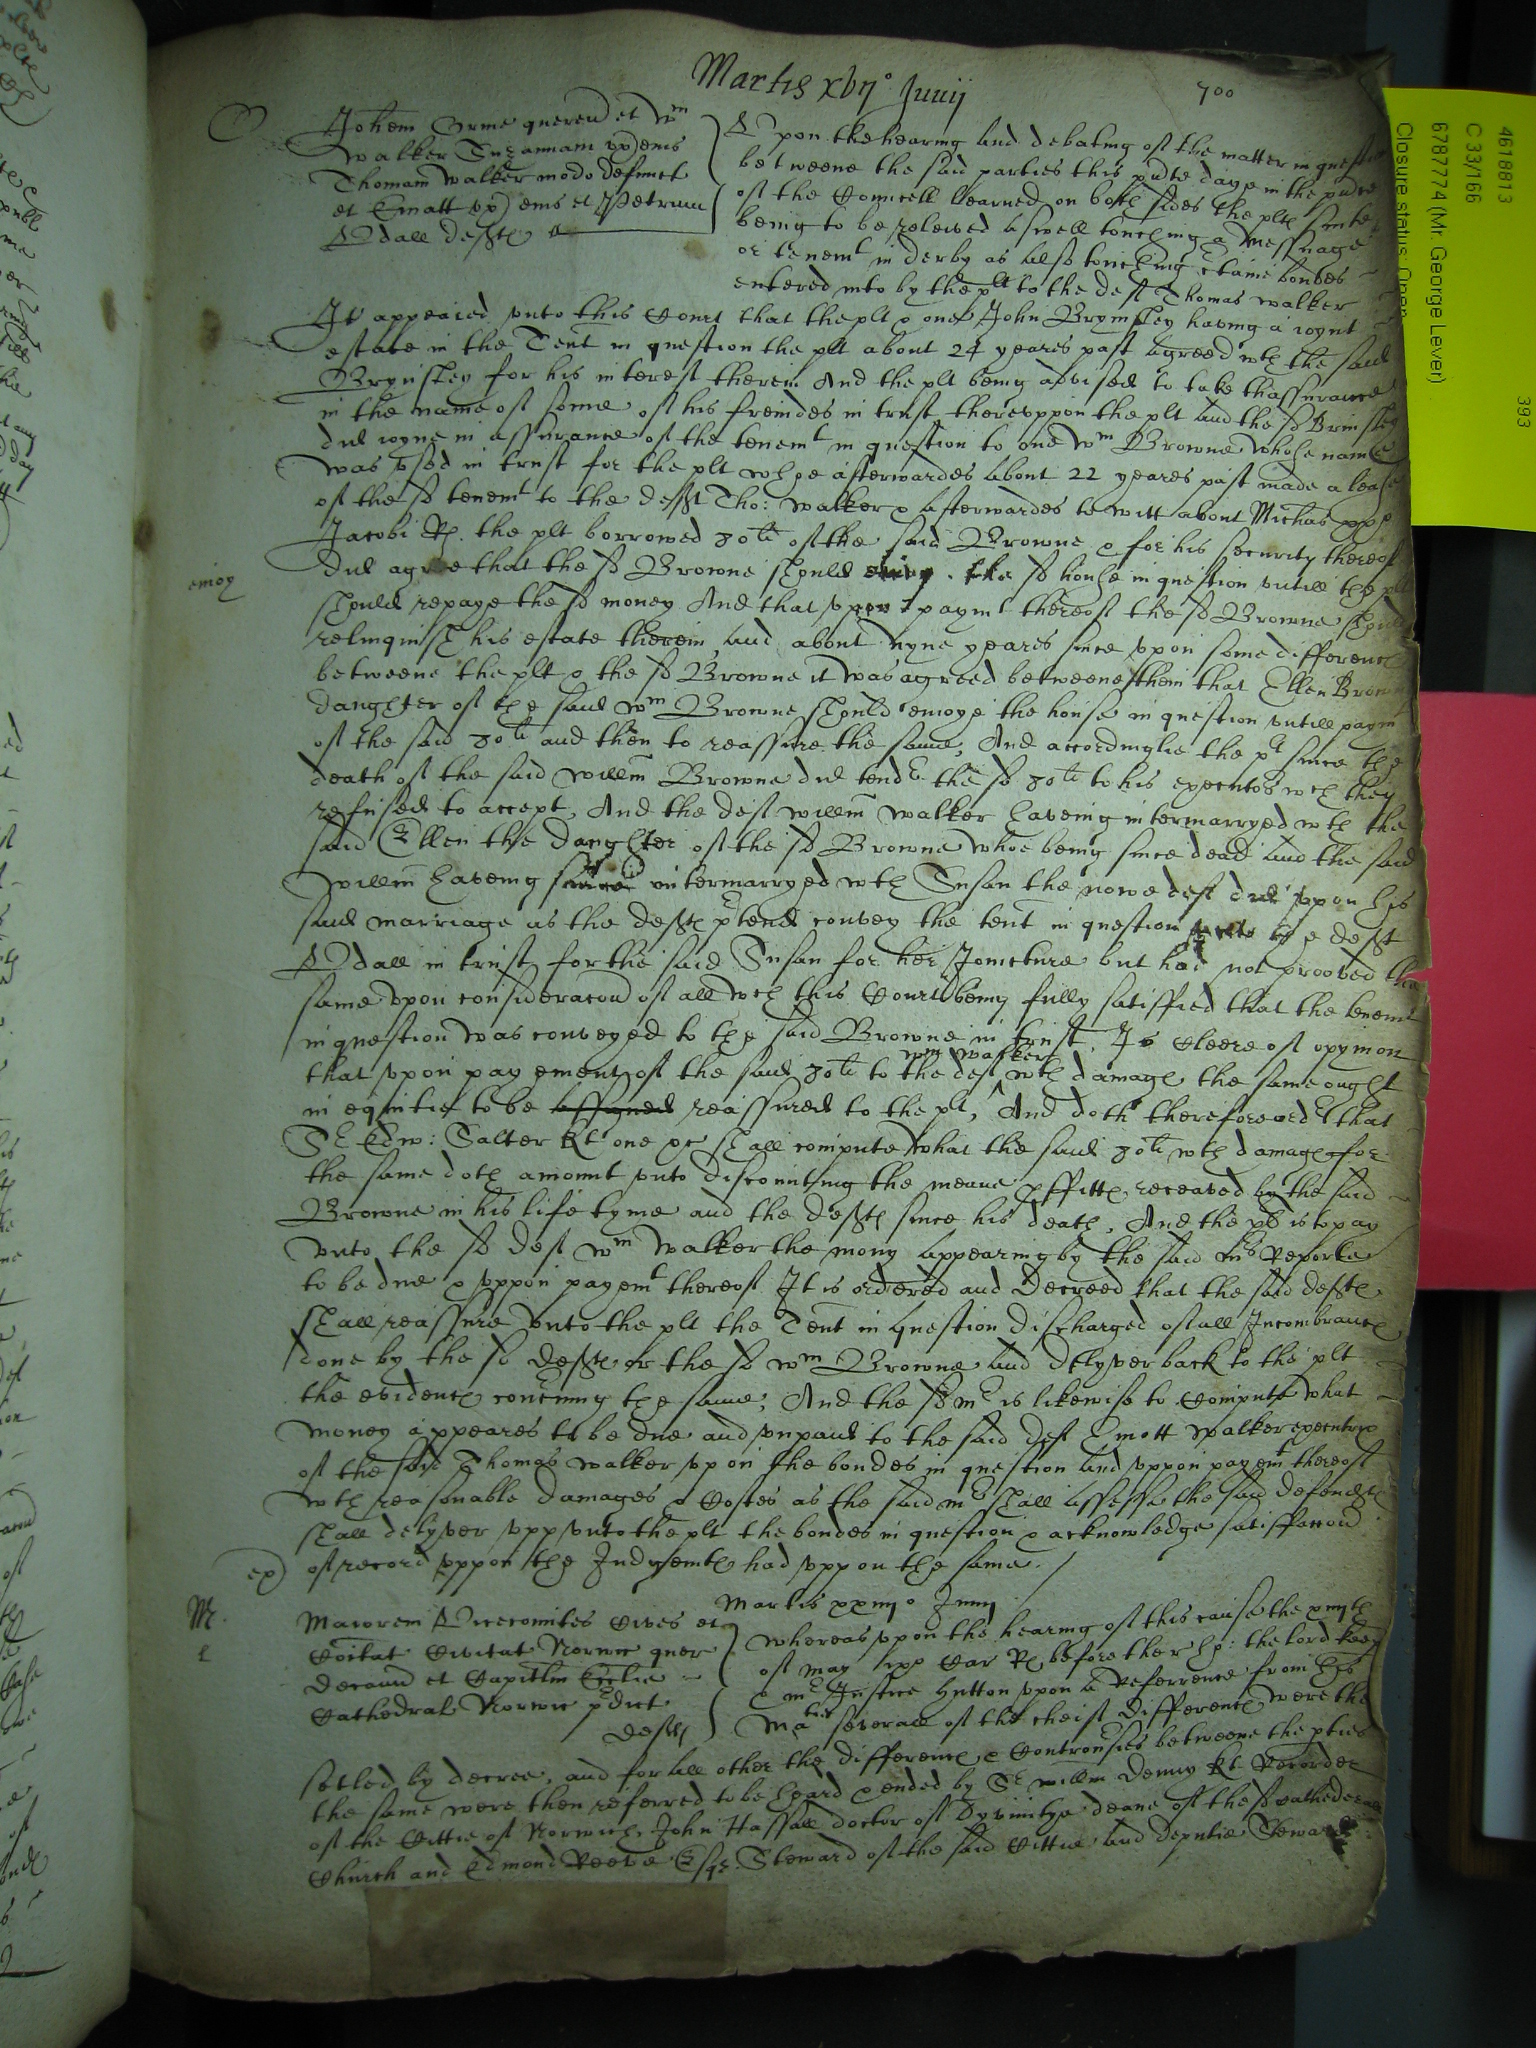 Martis xvij° Junij
700
Johem Orme queren et Wm
Walker Suzannam uxem eius
Thomam Walker modo defunct
et Ematt uxem eius et Petrum
Udall deftes
Upon the hearing and debating of the matter in question
betweene the said parties this pnte daye in the pnce
of the Councell learned on both sides the pltes suite
being to be releived aswell touching a Messuage
or tenemt in derby as also touching ctaine bondes
entered into by the plt to the deft Thomas Walker
It appeared unto this Court that the plt & one John Brymsley having a ioynt
estate in the Tent in question the plt about 24 yeares past agreed wth the said
Brynsley for his interest therein And the plt being advised to take thassurance
in the name of some of his freindes in trust thereuppon the plt and the sd Brinsley
did ioyne in assurance of the tenemt in question to one Wm Browne whose name
was used in trust for the plt whoe afterwardes about 22 yeares past made a lease
of the sd tenemt to the deft Tho: Walker & afterwardes to witt about Michas
Jacobi R. the plt borrowed 30li of the said Browne & for his security thereof
enioy
did agree that the sd Browne should enioy the sd house in question untill the plt
should repaye the sd money And that upon paymt thereof the sd Browne should
relinquish his estate therein and about nyne yeares since upon some difference
betweene the plt & the sd Browne it was agreed betweene them that Ellen Browne
daughter of the said Wm Browne should enioye the house in question untill paymt
of the said 30li and then to reassure the same, And accordinglie the plt since the
death of the said Willm Browne did tender the sd 30li to his executors wch they
refused to accept, And the deft Willm Walker haveing intermarryed wth the
said Ellen the daughter of the sd Browne whoe being since dead and the said
Willm haveing since intermarryed wth Susan the nowe deft did upon his
said marriage as the deftes ptend convey the tent in question to the deft
Udall in trust for the said Susan for her Joincture but had not prooved the
same upon consideracon of all wch this Court being fully satisfied that the tenemt
in question was conveyed to the said Browne in trust, Is cleere of opynion
that upon payement of the said 30li to the deft Wm Walker wth damage the same ought
in equitie to be assigned reassured to the plt, And doth therefore order that
Sr Edw: Salter Kt one &c shall compute what the said 30li wth damages for
the same doth amount unto discounting the meane pffittes receaved by the said
Browne in his life tyme and the deftes since his death, And the plt is to pay
unto the sd deft Wm Walker the mony appearing by the said Mrs Reporte
to be due & uppon payemt thereof It is ordered and Decreed that the said deftes
shall reassure unto the plt the Tent in question discharged of all Incombrances
done by the sd deftes or the sd Wm Browne and delyver back to the plt
the evidences concning the same, And the sd Mr is likewise to compute what
money appeares to be due and unpaid to the said deft Emott Walker executrix
of the said Thomas Walker upon the bondes in question and uppon payemt thereof
wth reasonable damages & Costes as the said Mr shall assesse the said defendtes
shall delyver upp unto the plt the bondes in question & acknowledge satisfaccon
ex
of record uppon the Judgemtes had uppon the same.
Martis xxiiij° Junij
M.
Maiorem Vicecomites Cives et
Coitat Civitat Norwic quer
Decanu et Capitlm Ecclie
Cathedral Norwic pdict
deftes
Whereas upon the hearing of this cause the xiiijth
of May Car R before the lord Keep
& Mr Justice Hutton upon a Referrence from his
Matie severall of the cheif differences were the
setled by decree, and for all other the differences & Controversies betweene the pties
the same were then referred to be heard & ended by Sr Willm Denny Kt Recorder
of the Cittie of Norwich, John Hassall doctor of Dyvinitye deane of the sd Cathederall
Church and Edmond Reeve Esqr. Steward of the said Cittie and deputie Steward
4618813
C 33/166
6787774 (Mr. George Lever)
Closure status: Open
393